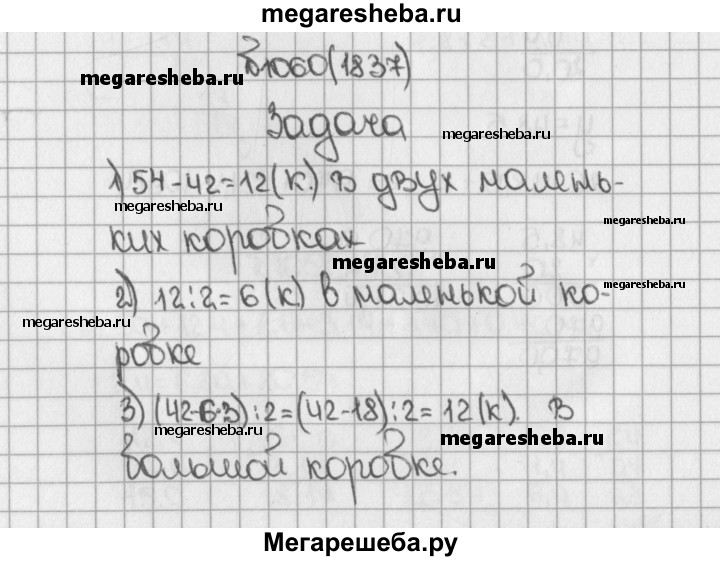 megaresheba.ru
№1060(1837)
megaresheba.ru
Задача
megaresheba.ru
1) 54-42=12(к.) в двух малень-
megaresheba.ru
megaresheba.ru
ких коробках
megaresheba.ru
2) 12:2=6(к) в маленькой ко-
megaresheba.ru
megaresheba.ru
робке
3) (42-6·3):2=(42-18):2=12(к). в
megaresheba.ru
megaresheba.ru
большой коробке.
Мегарешеба.ру